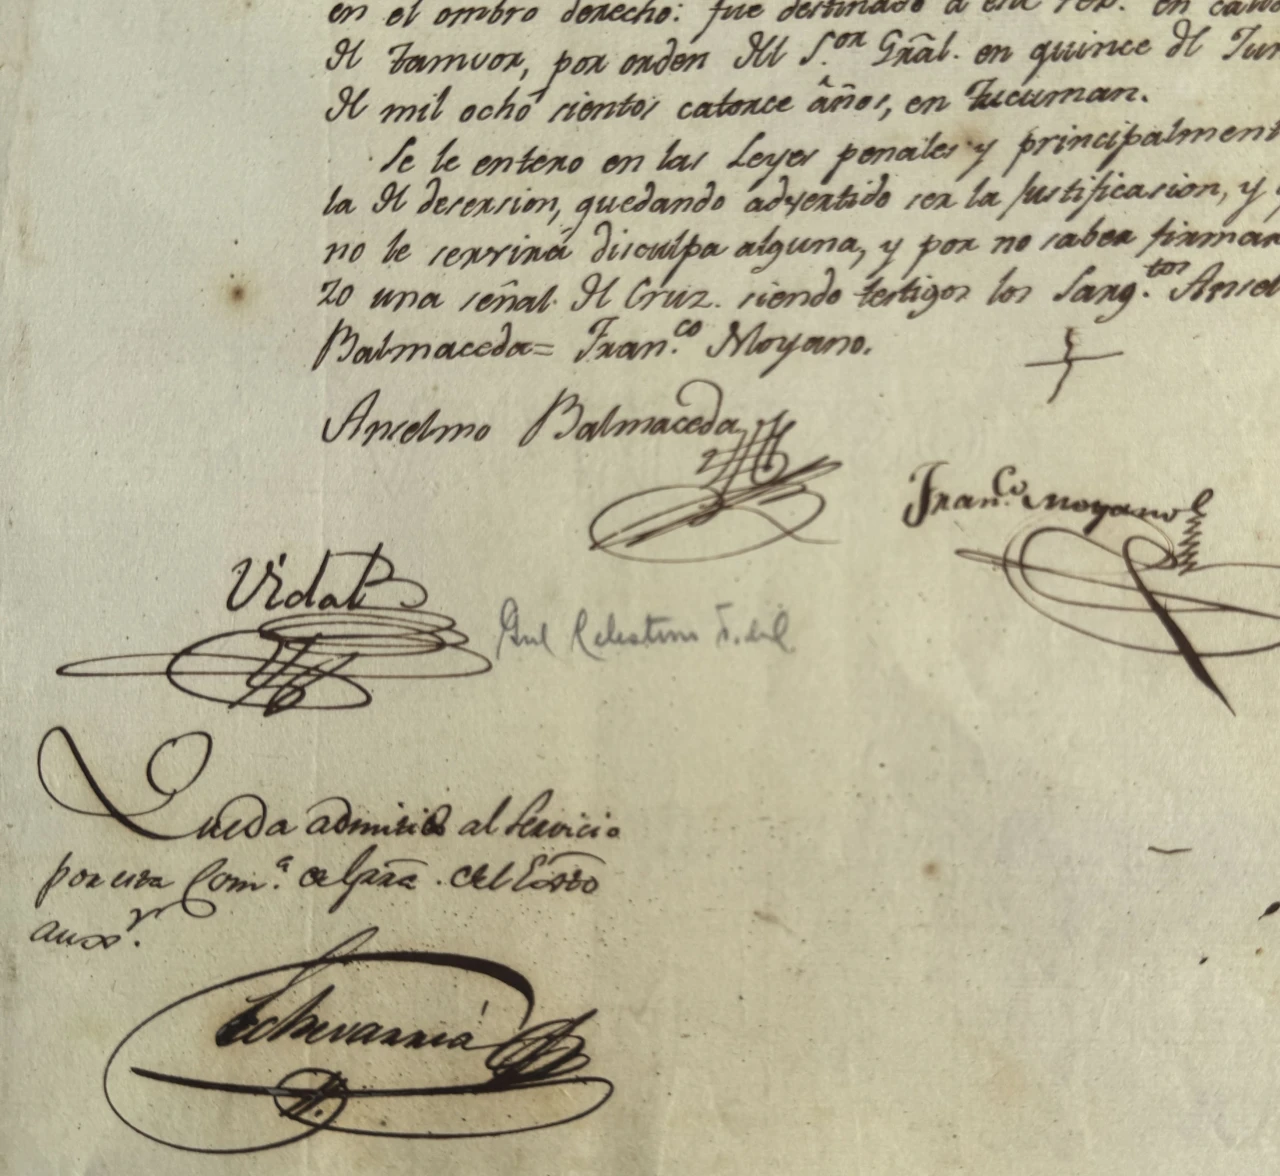 en el ombro derecho: fue destinado a este
de tamvor, por orden del S.or Grãl. en quince de
de mil ocho sientos catorce años, en Tucuman.
Se le entero en las Leyes penales y principalment
la de desersion, quedando advertido ser la justificasion, y
no le servirá disculpa alguna, y por no saber firmar
zo una señal de Cruz. siendo testigos los Sarg.tos Ansel
Balmaceda= Fran.co Moyano.
Anselmo Balmaceda
Fran.co Moyano
Vidal
Gral Celestino Vidal
Queda admitido al servicio
por esta Com.a de Grrã. del Exto
auxr.
Echevarria